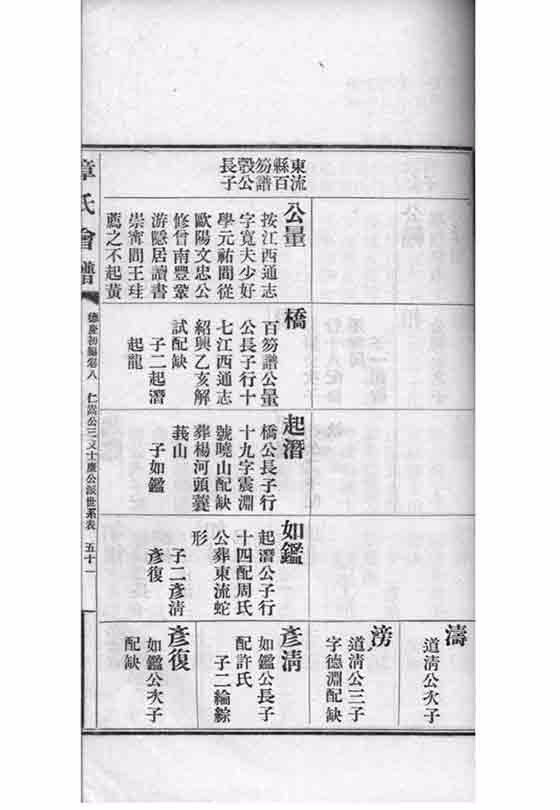 東流
縣百
笏譜
彀公
長子
公量
按江西通志
字寬夫少好
學元祐間從
歐陽文忠公
修曾南豐鞏
游隱居讀書
崇寗間王珪
薦之不起黃
橋
百笏譜公量
公長子行十
七江西通志
紹興乙亥解
試配缺
子二起潛
起龍
起潛
橋公長子行
十九字震淵
號曉山配缺
葬楊河頭蓑
莪山
子如鑑
如鑑
起潛公子行
十四配周氏
公葬東流蛇
形
子二彥淸
彥復
濤
道淸公次子
滂
道淸公三子
字德淵配缺
彥淸
如鑑公長子
配許氏
子二綸綜
彥復
如鑑公次子
配缺
章氏會譜
德慶初編卷八
仁嵩公三义士廉公派世系表
五十一